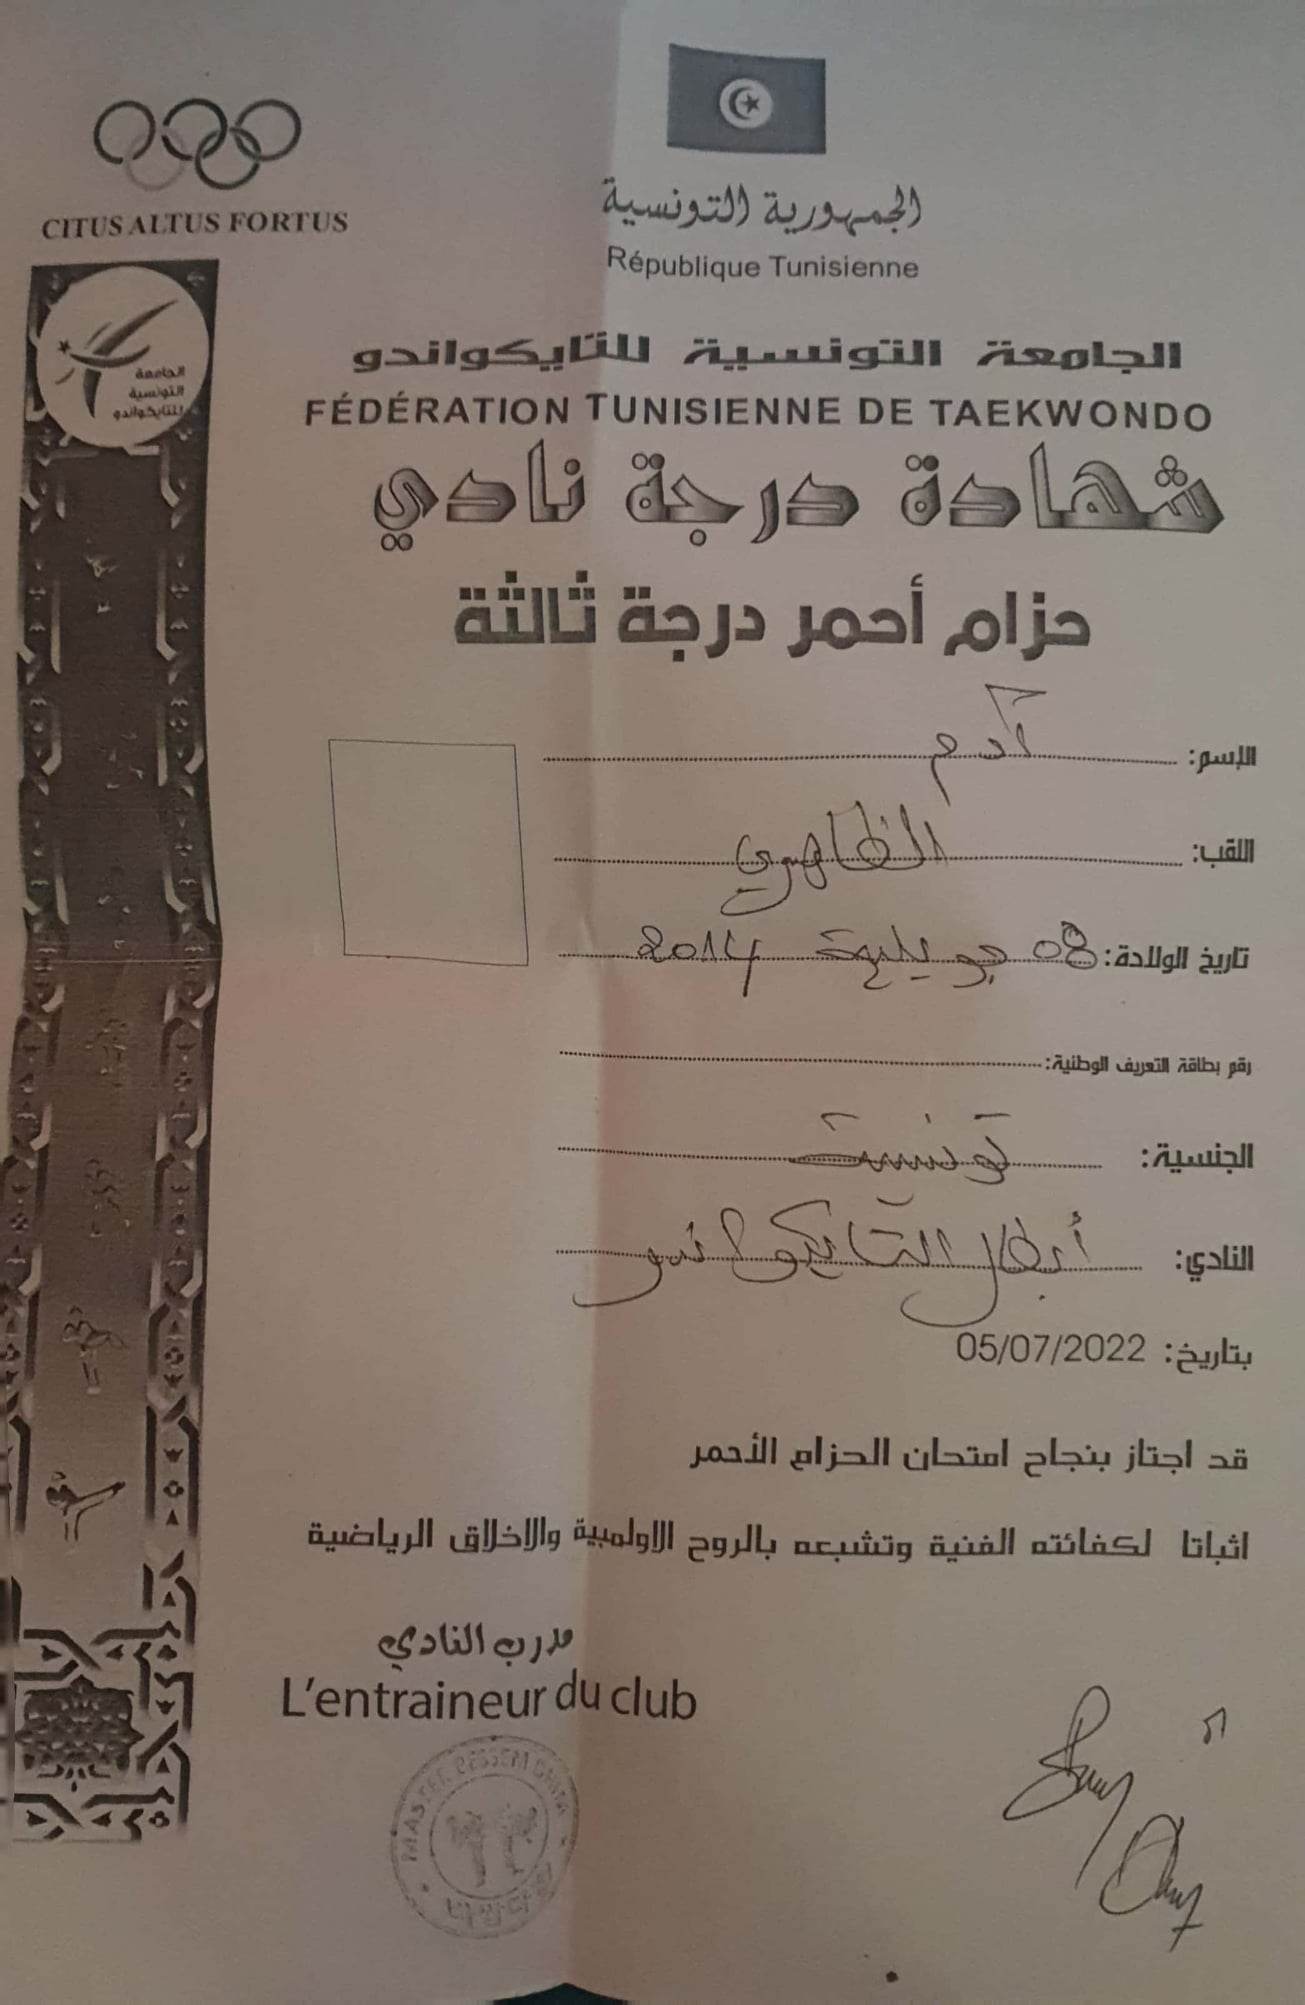 CITUS ALTUS FORTUS
الجمهورية التونسية
République Tunisienne
الجامعة التونسية للتايكواندو
الجامعة التونسية للتايكواندو
FÉDÉRATION TUNISIENNE DE TAEKWONDO
شهادة درجة نادي
حزام أحمر درجة ثالثة
الإسم: آدم
اللقب: الظاهري
تاريخ الولادة: 08 جويلية 2014
رقم بطاقة التعريف الوطنية:
الجنسية: تونسية
النادي: أبطال التايكواندو
بتاريخ: 05/07/2022
قد اجتاز بنجاح امتحان الحزام الأحمر
اثباتا لكفائته الفنية وتشبعه بالروح الاولمبية والاخلاق الرياضية
مدرب النادي
L'entraineur du club
MASTER BESSEM